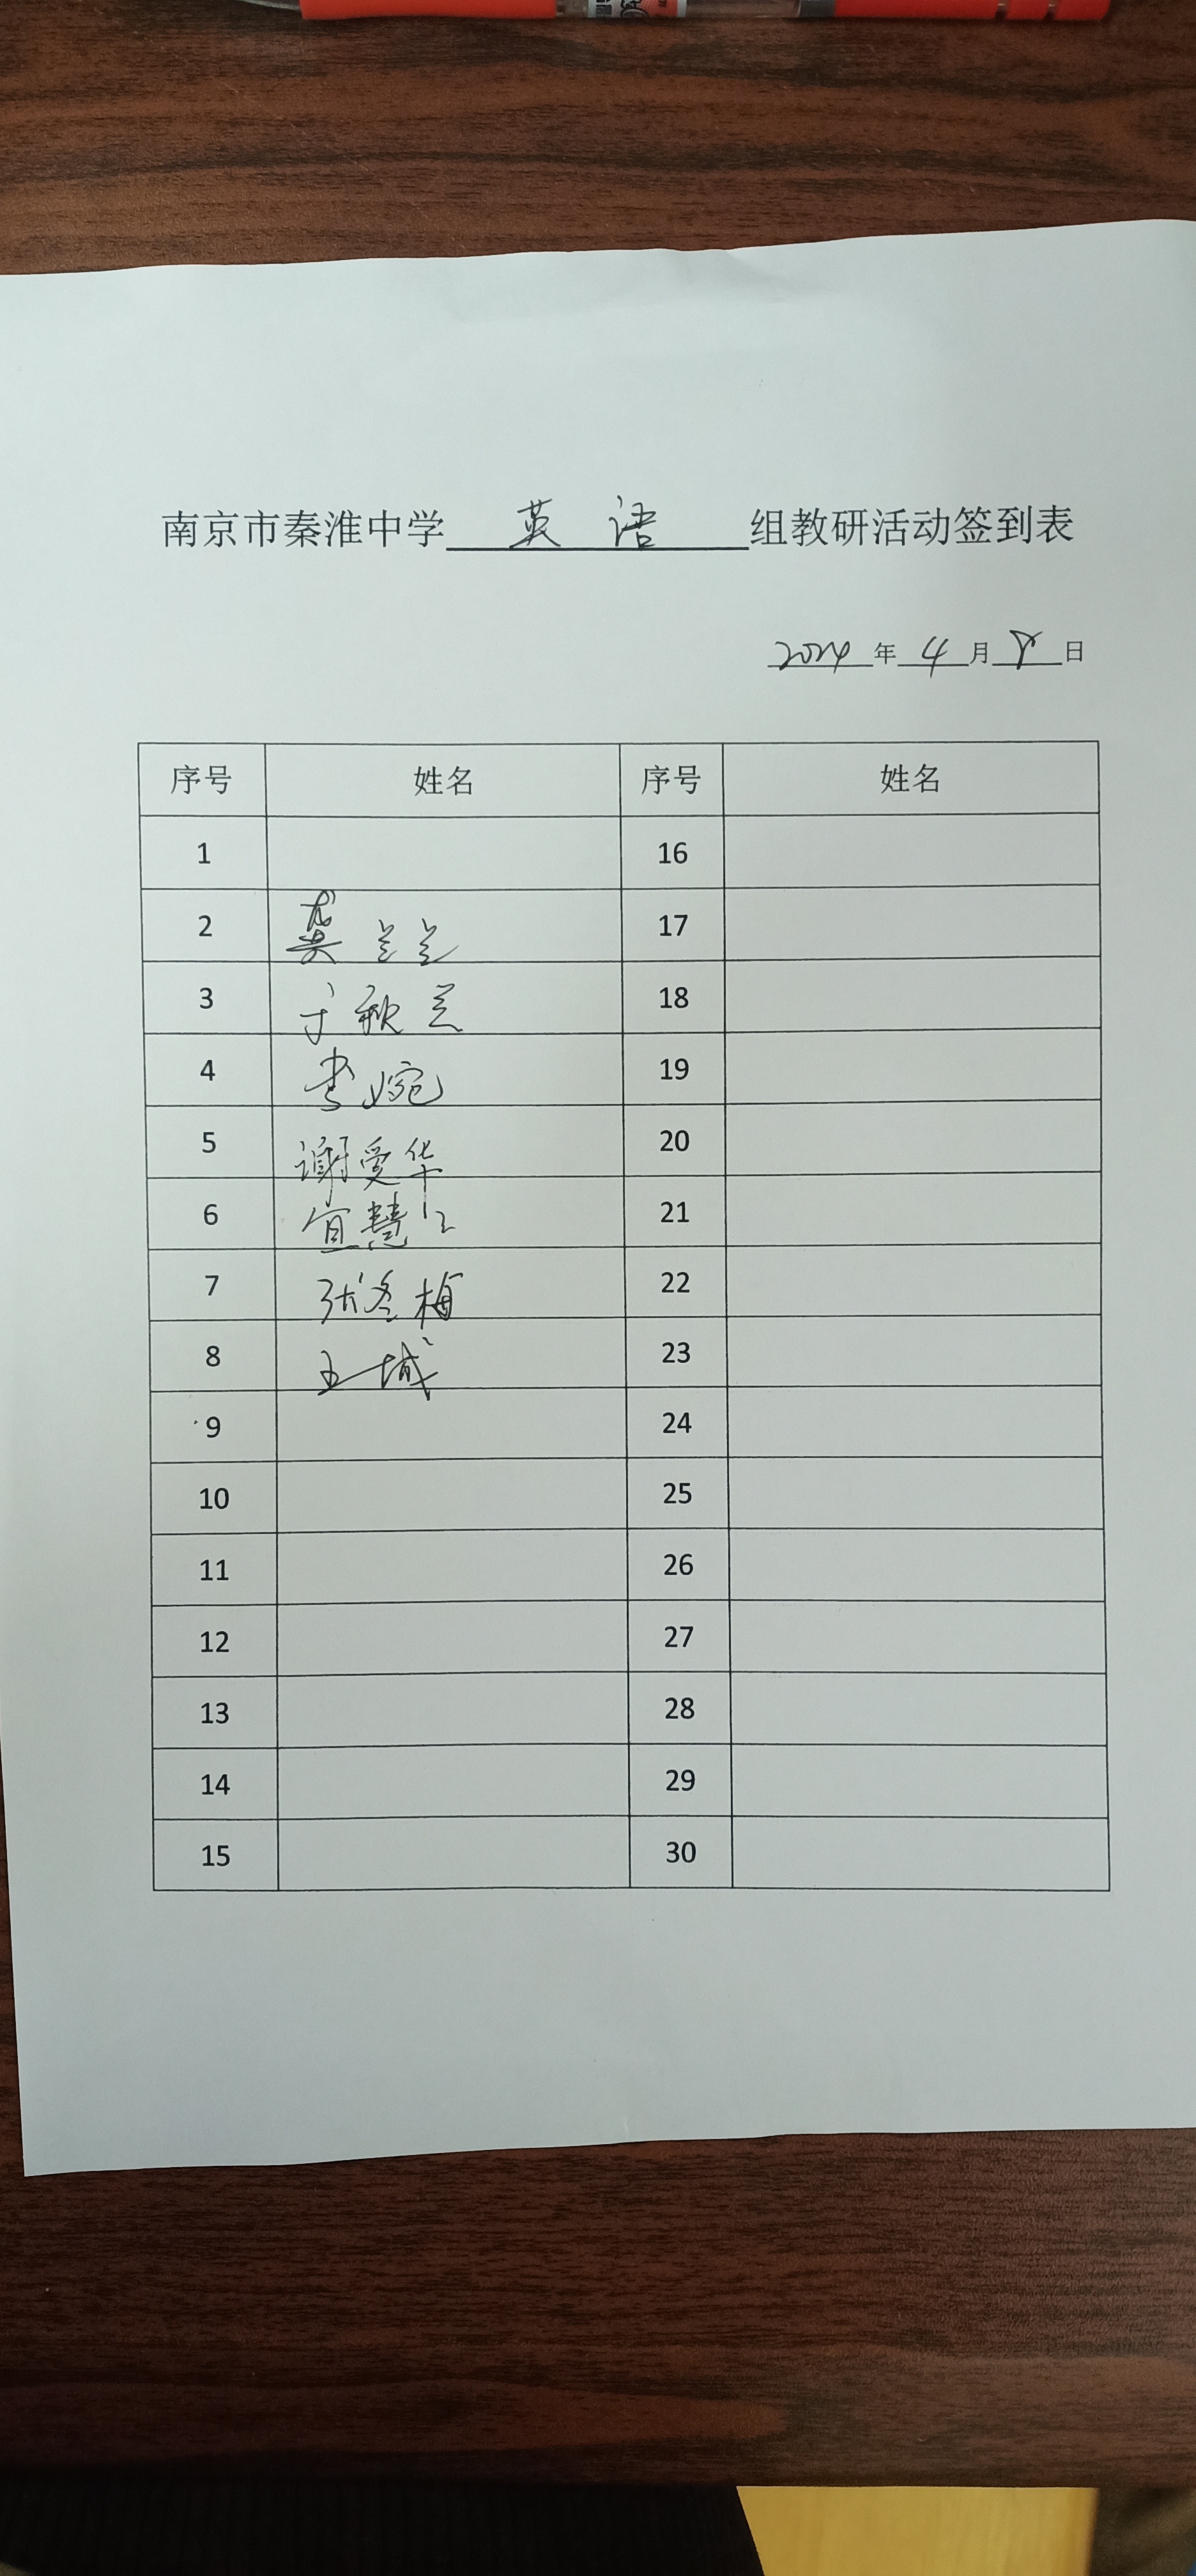 南京市秦淮中学 英语 组教研活动签到表
2024 年 4 月 8 日
序号 姓名 序号 姓名
1 16
2 龚兰兰 17
3 于秋兰 18
4 李婉 19
5 谢爱华 20
6 宣慧 21
7 张冬梅 22
8 王城 23
9 24
10 25
11 26
12 27
13 28
14 29
15 30